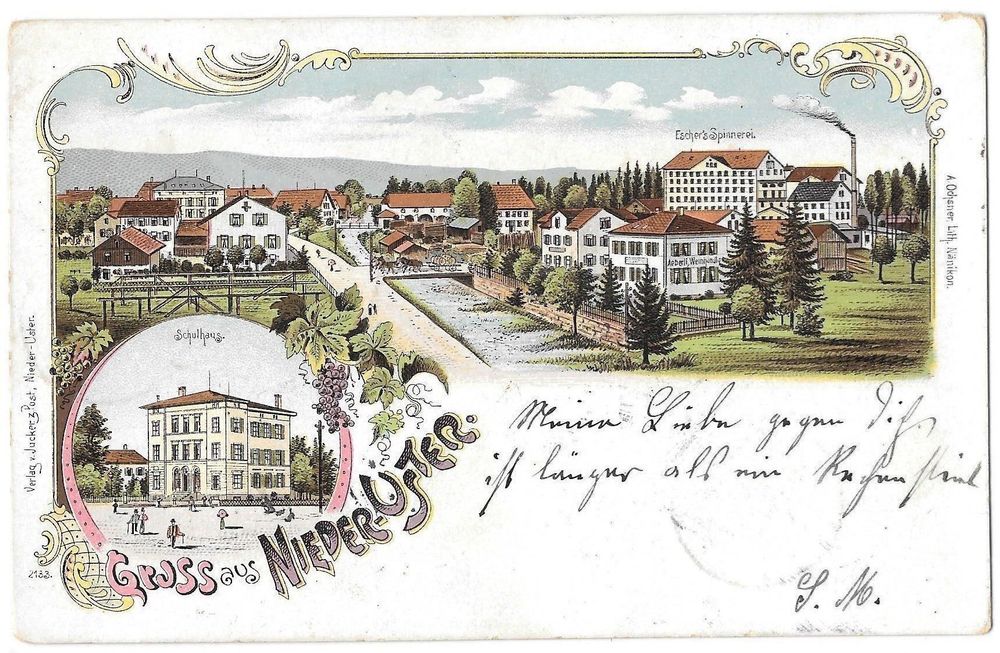 Escher's Spinnerei.
Aeberli, Weinhandlg
Schulhaus.
Gruss aus Nieder-Uster.
Meine Liebe gegen Dich
ist länger als ein
S. M.
Verlag v. Jucker z. Post, Nieder-Uster.
A. Ochsner, Lith. Nänikon.
2133.